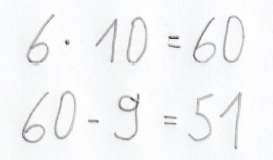 6 · 10 = 60
60 - 9 = 51